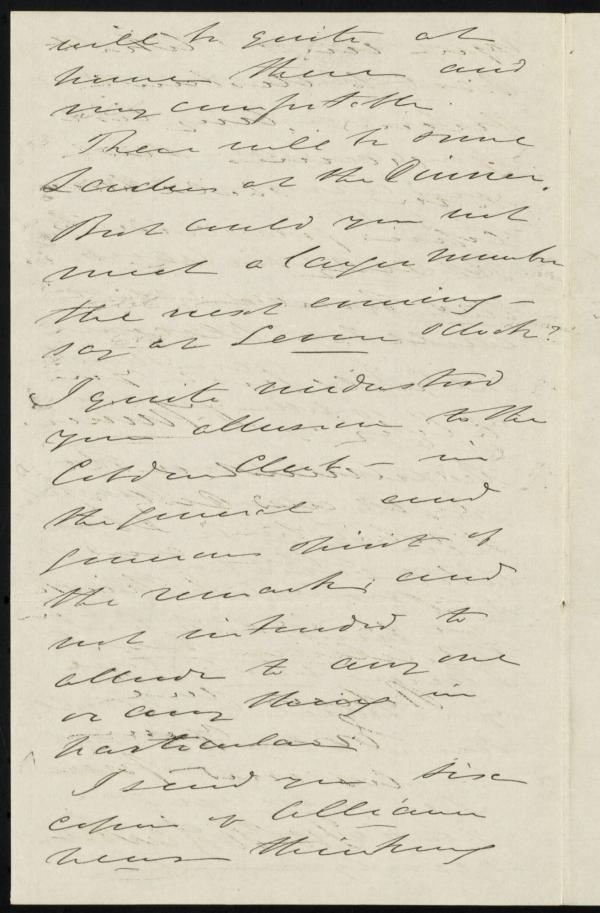 will be quite at
home there and
very comfortable.
There will be some
Leaders at the Dinner.
But could you not
meet a larger number
the next evening –
say at Seven O'Clock?
I quite understood
your allusion to the
Cobden Club – in
the general and
generous spirit of
the remarks and
not intended to
allude to any one
or any thing in
particular
I send you six
copies of Alliance
News thinking